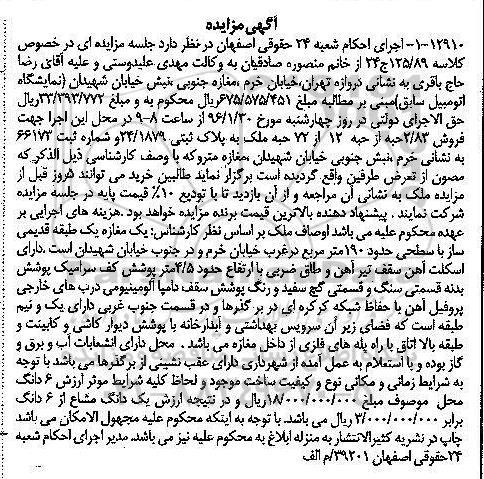 آگهی مزایده
۱۲۹۱۰-۱- اجرای احکام شعبه ۲۴ حقوقی اصفهان در نظر دارد جلسه مزایده ای در خصوص
کلاسه ۱۲۵/۸۹ج۲۴ از خانم منصوره صادقیان به وکالت مهدی علیدوستی و علیه آقای رضا
حاج باقری به نشانی دروازه تهران،خیابان خرم ،مغازه جنوبی ،نبش خیابان شهیدان (نمایشگاه
اتومبیل سابق)مبنی بر مطالبه مبلغ ۶۷۵/۵۷۵/۴۵۱ریال محکوم به و مبلغ ۳۳/۳۹۳/۷۷۲ریال
حق الاجرای دولتی در روز چهارشنبه مورخ ۹۶/۱/۳۰ از ساعت ۸-۹ در محل این اجرا جهت
فروش ۲/۸۳حبه از حبه ۱۲ از ۷۲ حبه ملک به پلاک ثبتی ۲۴/۱۸۷۹و شماره ثبت ۶۶۱۷۳
به نشانی خرم ،نبش جنوبی خیابان شهیدان ،مغازه متروکه با وصف کارشناسی ذیل الذکر که
مصون از تعرض طرفین واقع گردیده است برگزار نماید طالبین خرید می توانند ۵روز قبل از
مزایده ملک به نشانی آن مراجعه و از آن بازدید تا با تودیع ۱۰٪ قیمت پایه در جلسه مزایده
شرکت نمایند . پیشنهاد دهنده بالاترین قیمت برنده مزایده خواهد بود .هزینه های اجرایی بر
عهده محکوم علیه می باشد اوصاف ملک بر اساس نظر کارشناس: یک مغازه یک طبقه قدیمی
ساز با سطحی حدود ۱۹۰متر مربع درغرب خیابان خرم و در جنوب خیابان شهیدان است .دارای
اسکلت آهن سقف تیر آهن و طاق ضربی با ارتفاع حدود ۴/۵متر پوشش کف سرامیک پوشش
بدنه قسمتی سنگ و قسمتی گچ سفید و رنگ پوشش سقف دامپا آلومینیومی درب های خارجی
پروفیل آهن با حفاظ شبکه کرکره ای در بر گذرها و در قسمت جنوب غربی دارای یک و نیم
طبقه است که فضای زیر آن سرویس بهداشتی و آبدارخانه با پوشش دیوار کاشی و کابینت و
طبقه بالا اتاق با راه پله های فلزی از داخل مغازه می باشد . محل دارای انشعابات آب و برق و
گاز بوده و با استعلام به عمل آمده از شهرداری دارای عقب نشینی از برگذرها می باشد با توجه
به شرایط زمانی و مکانی نوع و کیفیت ساخت موجود و لحاظ کلیه شرایط موثر ارزش ۶ دانگ
محل موصوف مبلغ ۱۸/۰۰۰/۰۰۰/۰۰۰ریال و در نتیجه ارزش یک دانگ مشاع از ۶ دانگ
برابر ۳/۰۰۰/۰۰۰/۰۰۰ ریال می باشد. با توجه به اینکه محکوم علیه مجهول الامکان می باشد
چاپ در نشریه کثیرالانتشار به منزله ابلاغ به محکوم علیه نیز می باشد. مدیر اجرای احکام شعبه
۲۴حقوقی اصفهان ۳۹۲۰۱/م الف